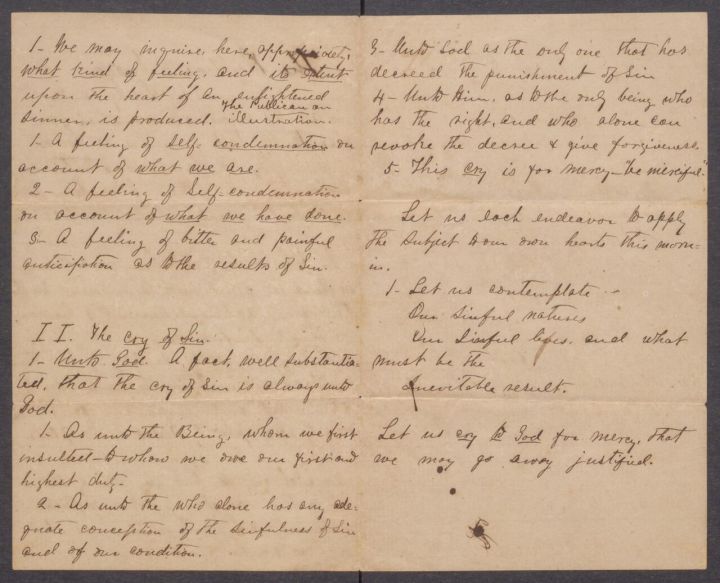 1- We may inquire, here, appropriately,
what kind of feeling, and its
upon the heart of an enlightened
The Publican an
sinner, is produced. illustration.
1- A feeling of self-condemnation on
account of what we are.
2- A feeling of self-condemnation
on account of what we have done.
3- A feeling of bitter and painful
anticipation as to the results of Sin.
II. The cry of Sin.
1- Unto God. A fact, well substantia-
ted, that the cry of Sin is always unto
God.
1- As unto the Being, whom we first
insulted- to whom we owe our first and
highest duty-
2- As unto the who alone has any ade-
quate conception of the sinfulness of Sin
and of our condition.
3- Unto God as the only one that has
decreed the punishment of Sin
4- Unto Him, as to the only being who
has the right, and who alone can
revoke the decree & give forgiveness.
5- This cry is for mercy- "be merciful"
Let us each endeavor to apply
the subject to our own hearts this morn-
in.
1- Let us contemplate -
Our sinful natures
Our sinful lives, and what
must be the
inevitable result.
Let us cry to God for mercy, that
we may go away justified.